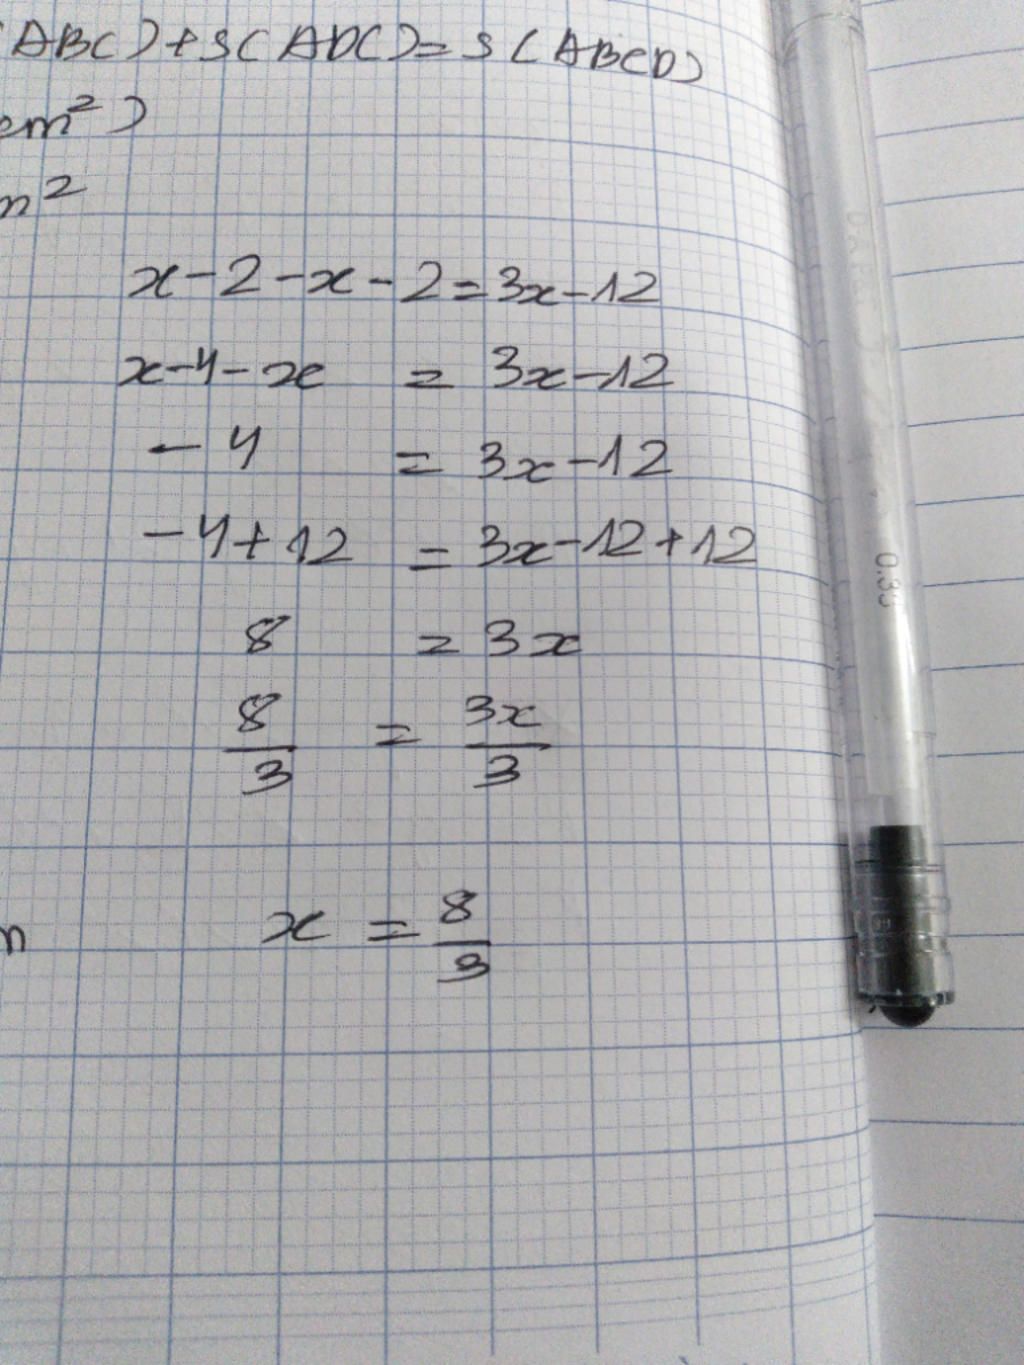 (ABC)+S(ADC)=S(ABCD)
cm²)
m²
x-2-x-2=3x-12
x-4-x = 3x-12
-4 = 3x-12
-4+12 = 3x-12+12
8 = 3x
8/3 = 3x/3
x = 8/3
0.35